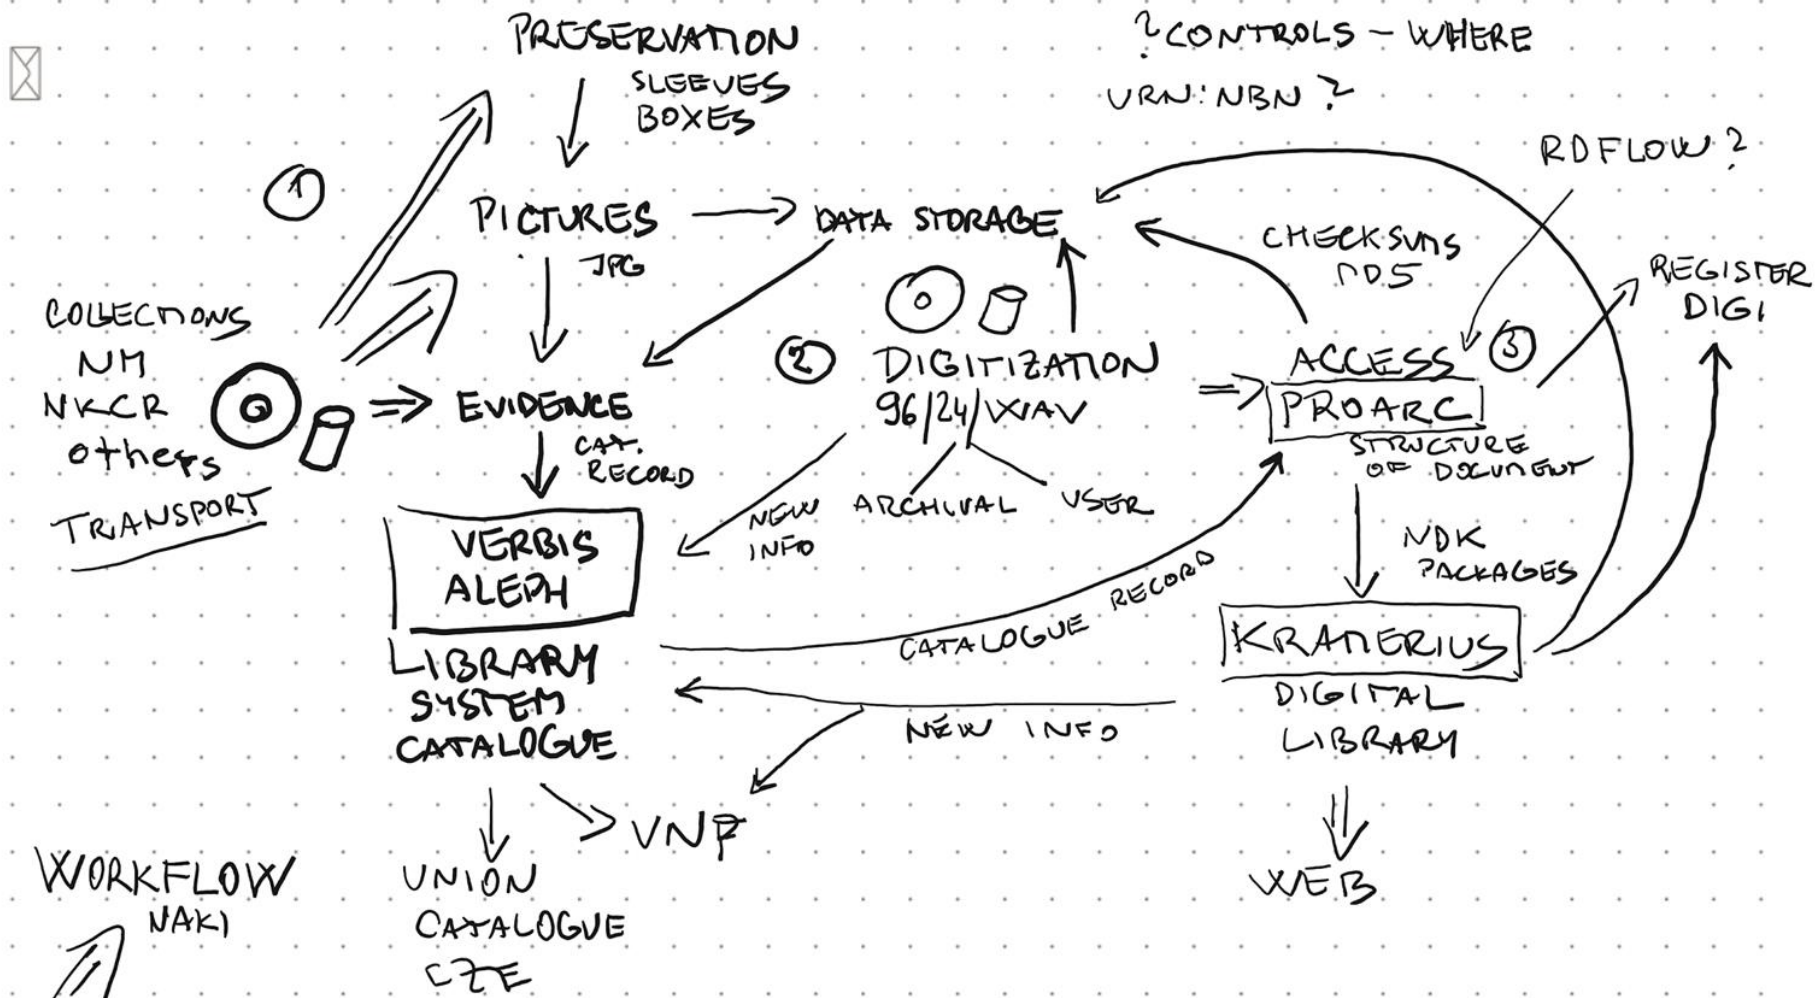 PRESERVATION
SLEEVES
BOXES
?CONTROLS - WHERE
URN:NBN?
RDFLOW?
1
PICTURES
JPG
DATA STORAGE
CHECKSUMS
MD5
REGISTER
DIGI
COLLECTIONS
NM
NKCR
others
TRANSPORT
EVIDENCE
CAT.
RECORD
2
DIGITIZATION
96/24/WAV
ARCHIVAL
USER
NEW
INFO
3
ACCESS
PROARC
STRUCTURE
OF DOCUMENT
NDK
PACKAGES
VERBIS
ALEPH
LIBRARY
SYSTEM
CATALOGUE
CATALOGUE RECORD
KRAMERIUS
DIGITAL
LIBRARY
NEW INFO
VNF
WEB
UNION
CATALOGUE
CZE
WORKFLOW
NAKI